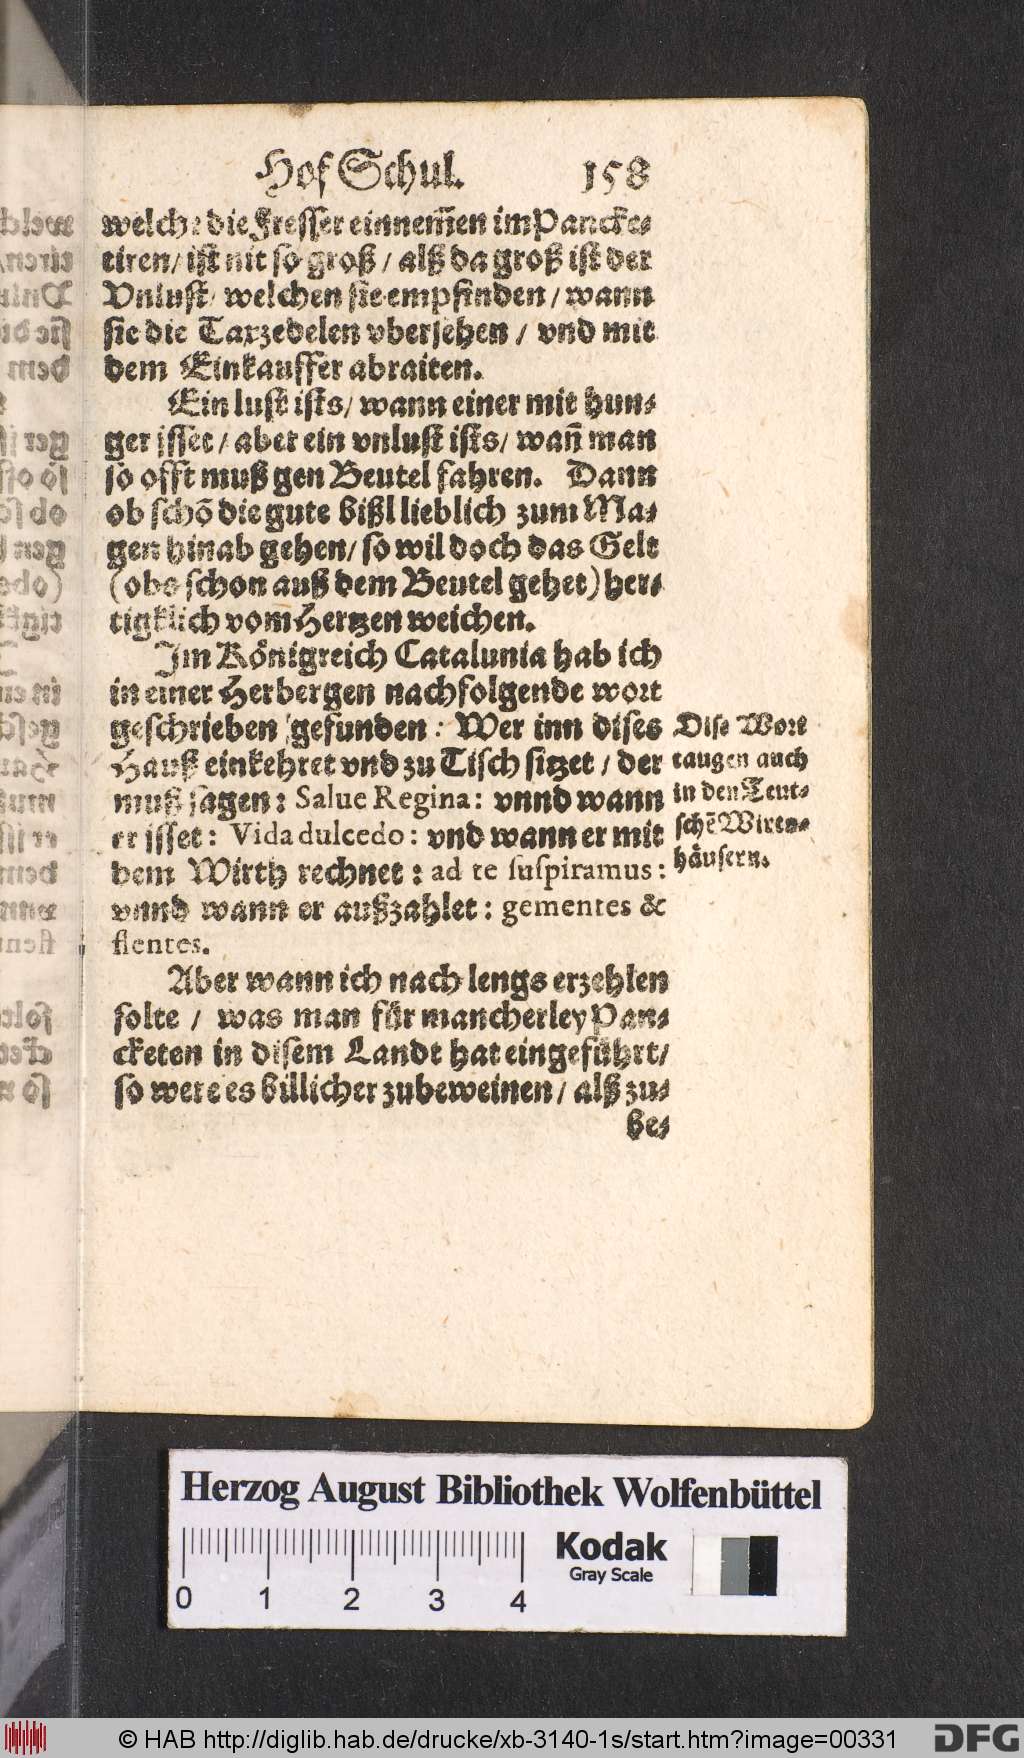 Hof Schul. 158
welche die Fresser einnem̃en im Pancke⸗
tiren/ ist nit so groß / alß da groß ist der
Vnlust/ welchen sie empfinden / wann
sie die Taxzedelen vbersehen / vnd mit
dem Einkauffer abraiten.
Ein lust ists/ wann einer mit hun⸗
ger isset / aber ein vnlust ists/ wañ man
so offt muß gen Beutel fahren. Dann
ob schõ die gute bißl lieblich zum Ma⸗
gen hinab gehen/ so wil doch das Gelt
(obs schon auß dem Beutel gehet) her⸗
tigklich vom Hertzen weichen.
Im Königreich Catalunia hab ich
in einer Herbergen nachfolgende wort
geschrieben gefunden: Wer inn dises
Hauß einkehret vnd zu Tisch sitzet / der
muß sagen: Salue Regina: vnnd wann
er isset: Vida dulcedo: vnd wann er mit
dem Wirth rechnet: ad te suspiramus:
vnnd wann er außzahlet: gementes &
flentes.
Dise Wort
taugen auch
in den Teut⸗
schẽ Wirts⸗
häusern.
Aber wann ich nach lengs erzehlen
solte / was man für mancherley Pan⸗
cketen in disem Landt hat eingeführt/
so were es billicher zubeweinen / alß zu⸗
be⸗
Herzog August Bibliothek Wolfenbüttel
Kodak
Gray Scale
0 1 2 3 4
© HAB http://diglib.hab.de/drucke/xb-3140-1s/start.htm?image=00331
DFG